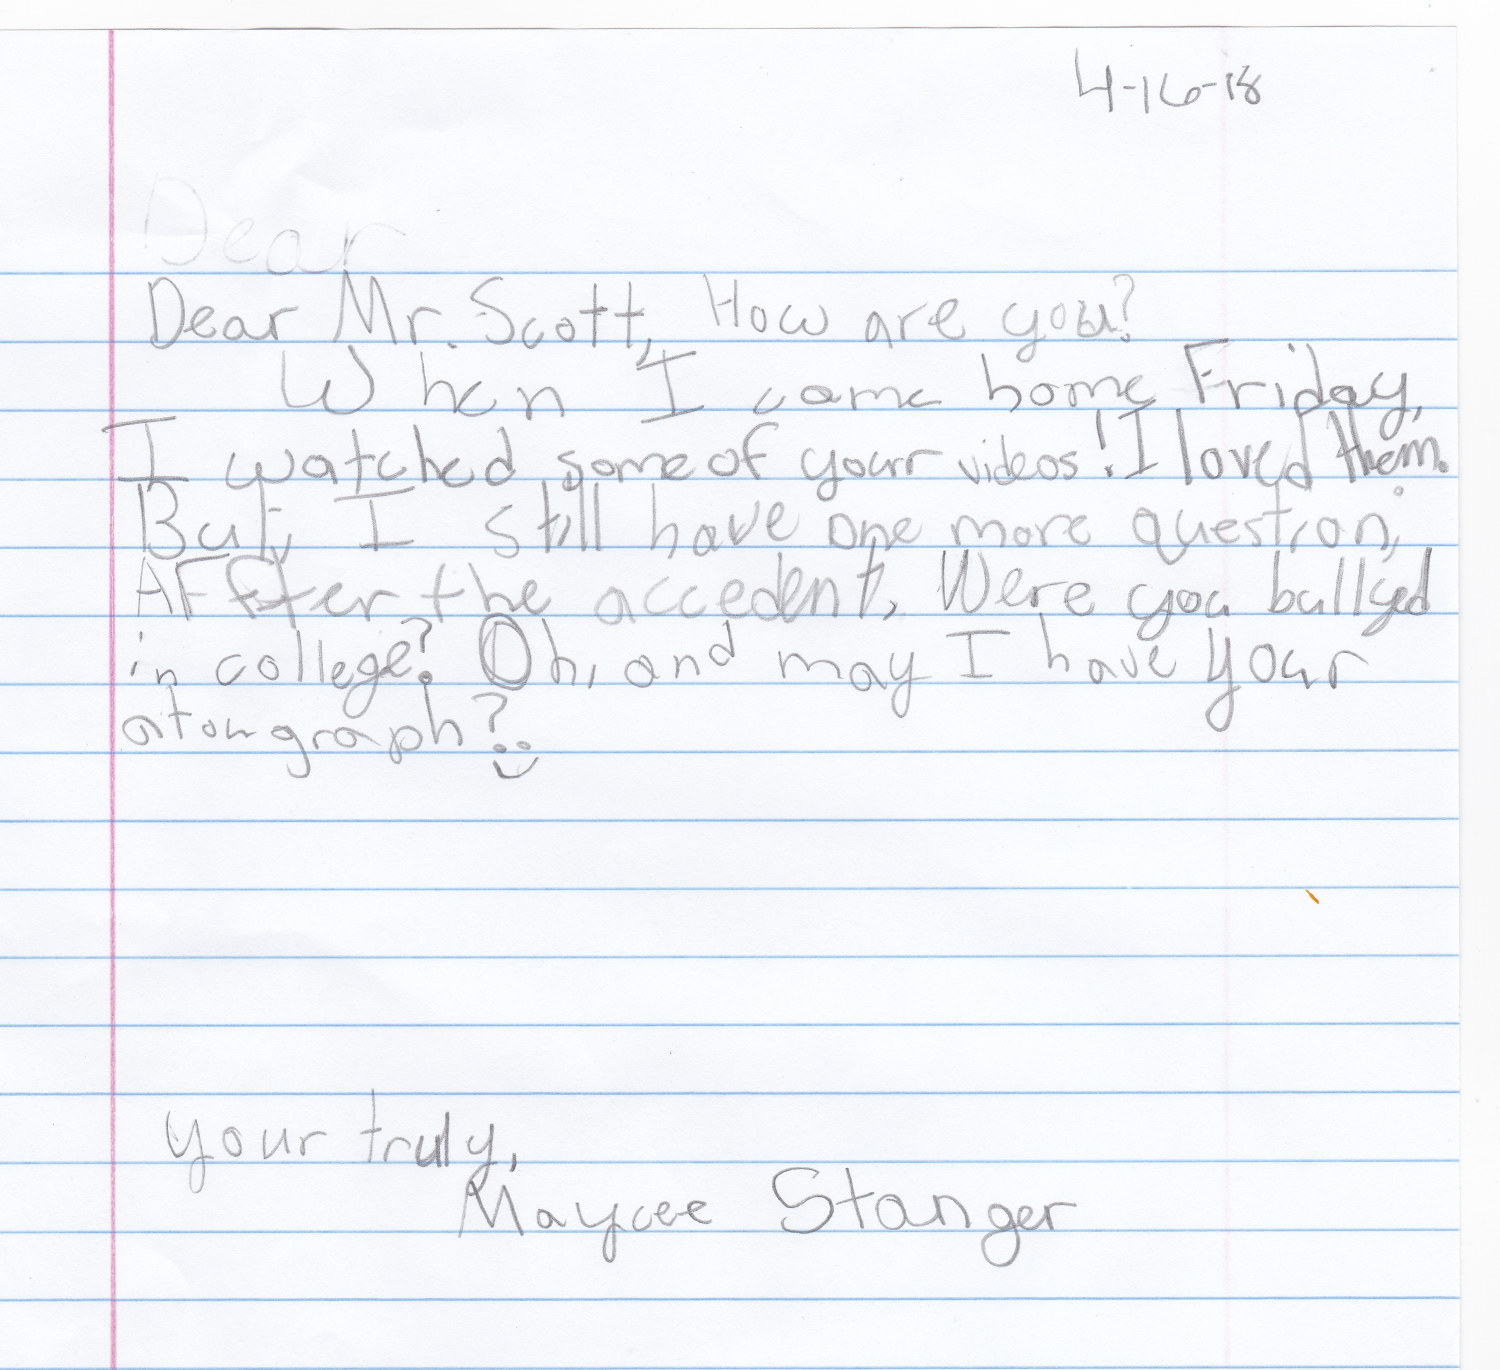 4-16-18
Dear
Dear Mr. Scott, How are you?
When I came home Friday,
I watched some of your videos! I loved them.
But, I still have one more question;
Affter the accedent, Were you bullyed
in college? Oh, and may I have your
atougraph?
your truly,
Maycee Stanger